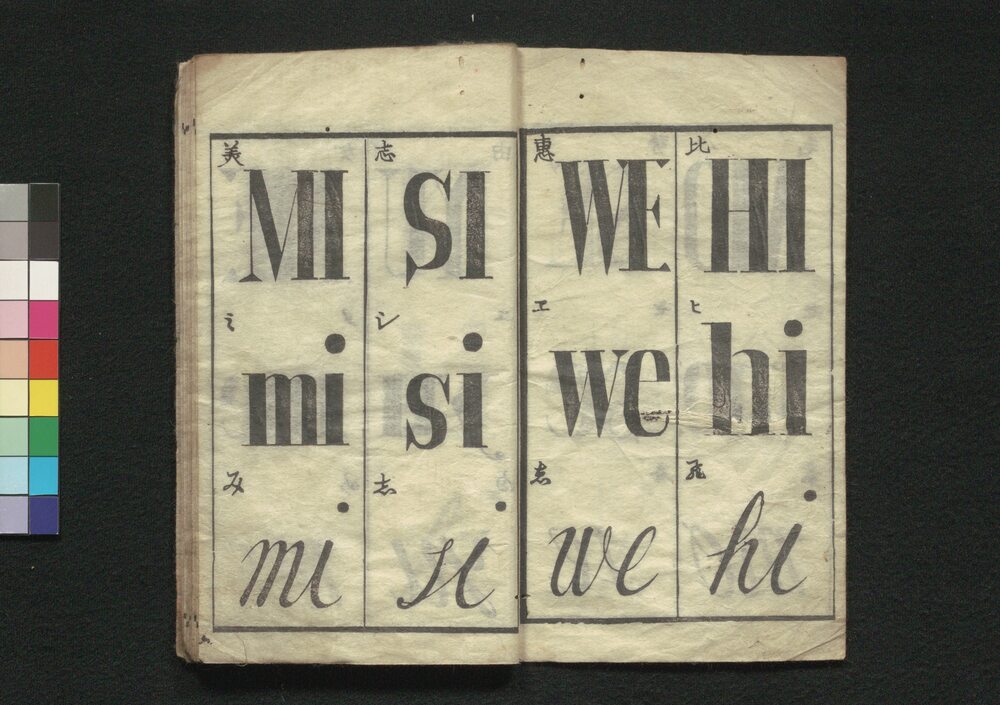 美
MI
ミ
mi
み
mi
志
SI
シ
si
志
si
惠
WE
ヱ
we
we
比
HI
ヒ
hi
飛
hi